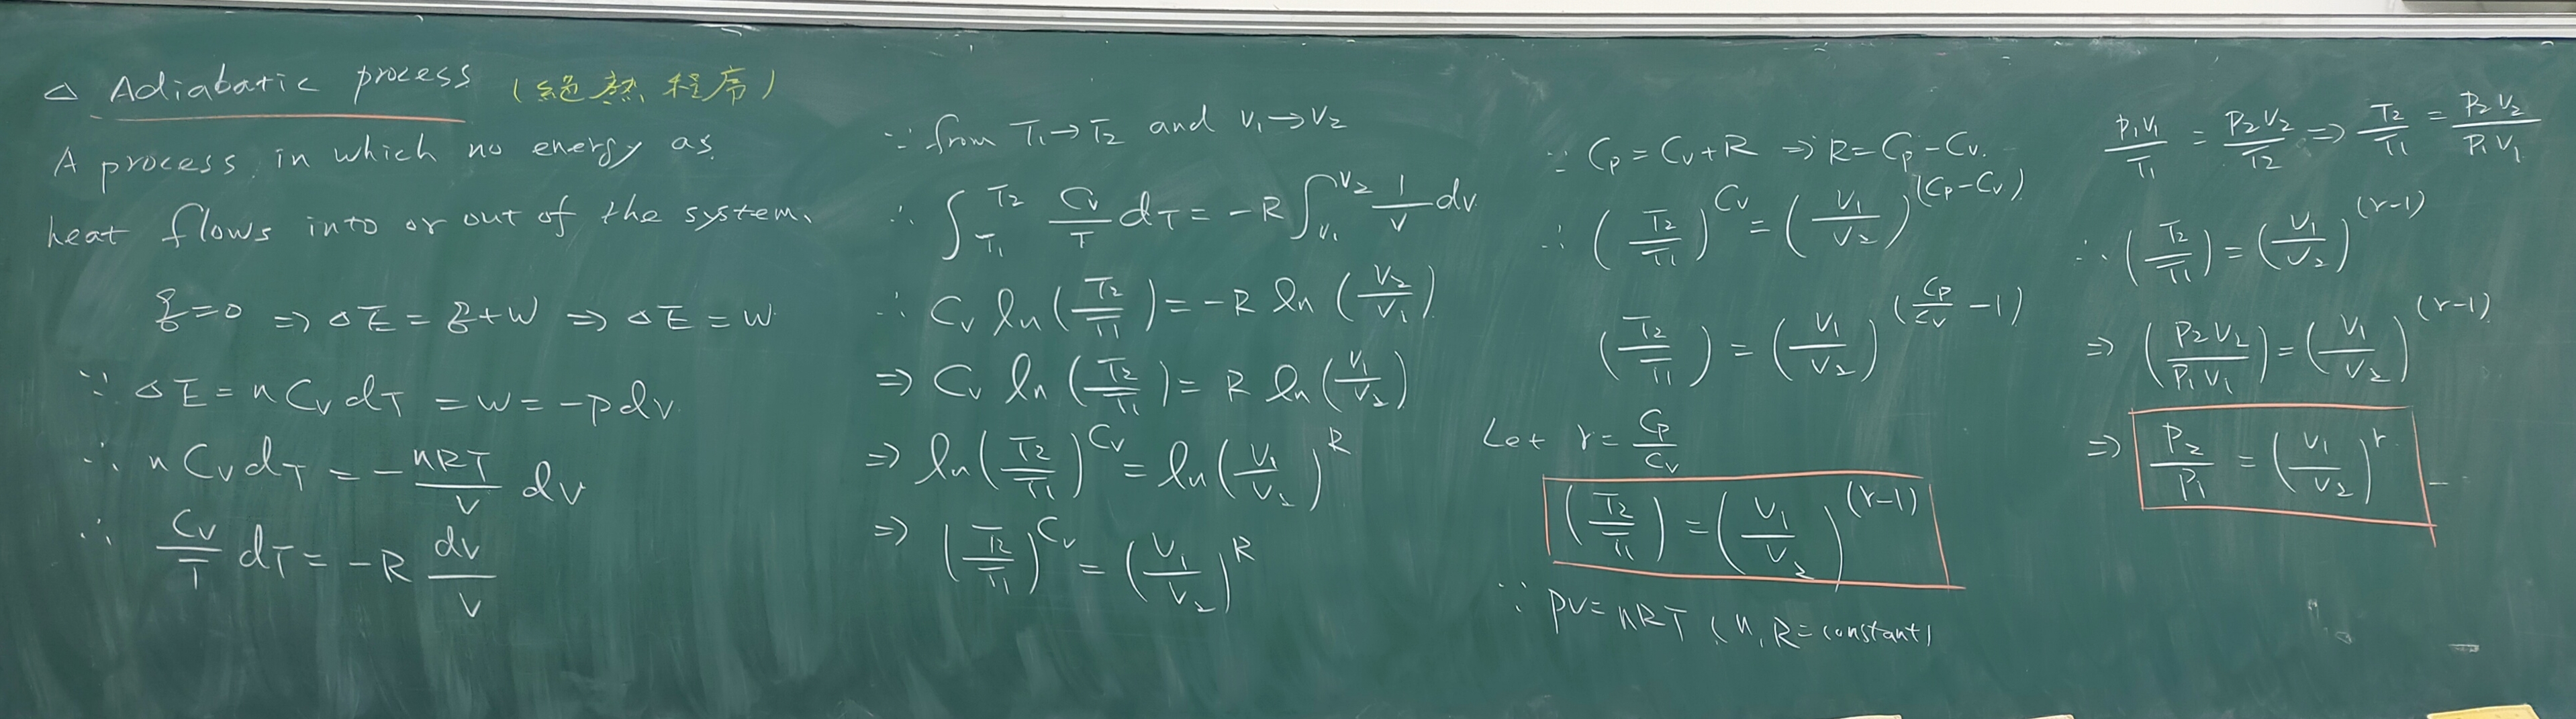 △ Adiabatic process (絕熱程序)
A process in which no energy as
heat flows into or out of the system.
q=0 ⇒ △E = q+W ⇒ △E = W
∵ △E = nCvdT = W = -pdV
∴ nCvdT = -nRT/V dV
∴ Cv/T dT = -R dV/V
∵ from T1→T2 and V1→V2
∴ ∫_{T1}^{T2} Cv/T dT = -R ∫_{V1}^{V2} 1/V dV
∴ Cv ln(T2/T1) = -R ln(V2/V1)
⇒ Cv ln(T2/T1) = R ln(V1/V2)
⇒ ln(T2/T1)^Cv = ln(V1/V2)^R
⇒ (T2/T1)^Cv = (V1/V2)^R
∵ Cp = Cv+R ⇒ R = Cp-Cv.
∴ (T2/T1)^Cv = (V1/V2)^(Cp-Cv)
(T2/T1) = (V1/V2)^(Cp/Cv -1)
Let r = Cp/Cv
(T2/T1) = (V1/V2)^(r-1)
∵ PV = nRT (n, R = constant)
P1V1/T1 = P2V2/T2 ⇒ T2/T1 = P2V2/P1V1
∴ (T2/T1) = (V1/V2)^(r-1)
⇒ (P2V2/P1V1) = (V1/V2)^(r-1)
⇒ P2/P1 = (V1/V2)^r